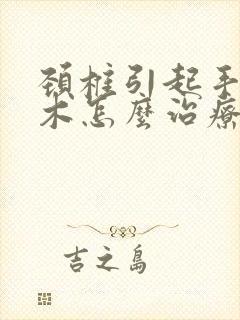 頸椎引起手
木怎麼治療
吉之島